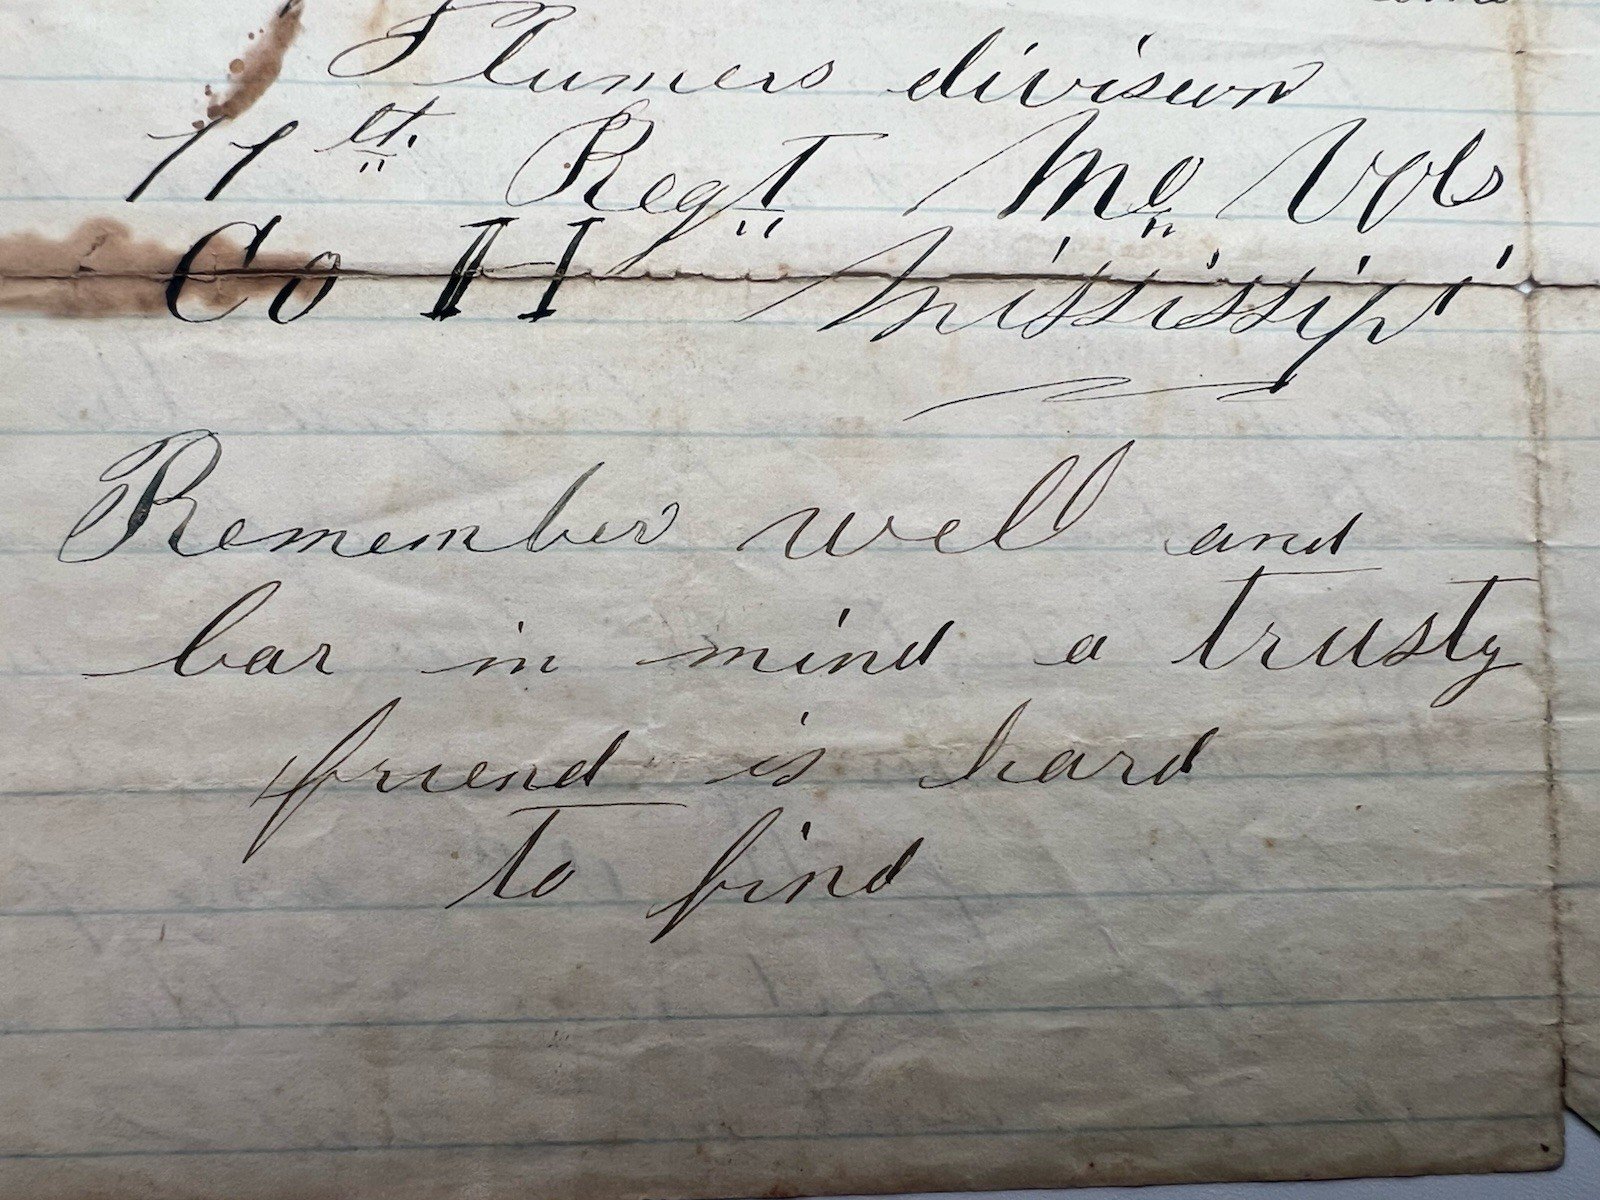 Plumers division
11th Regt Me Vols
Co H Mississippi
Remember well and
bar in mind a trusty
friend is hard
to find